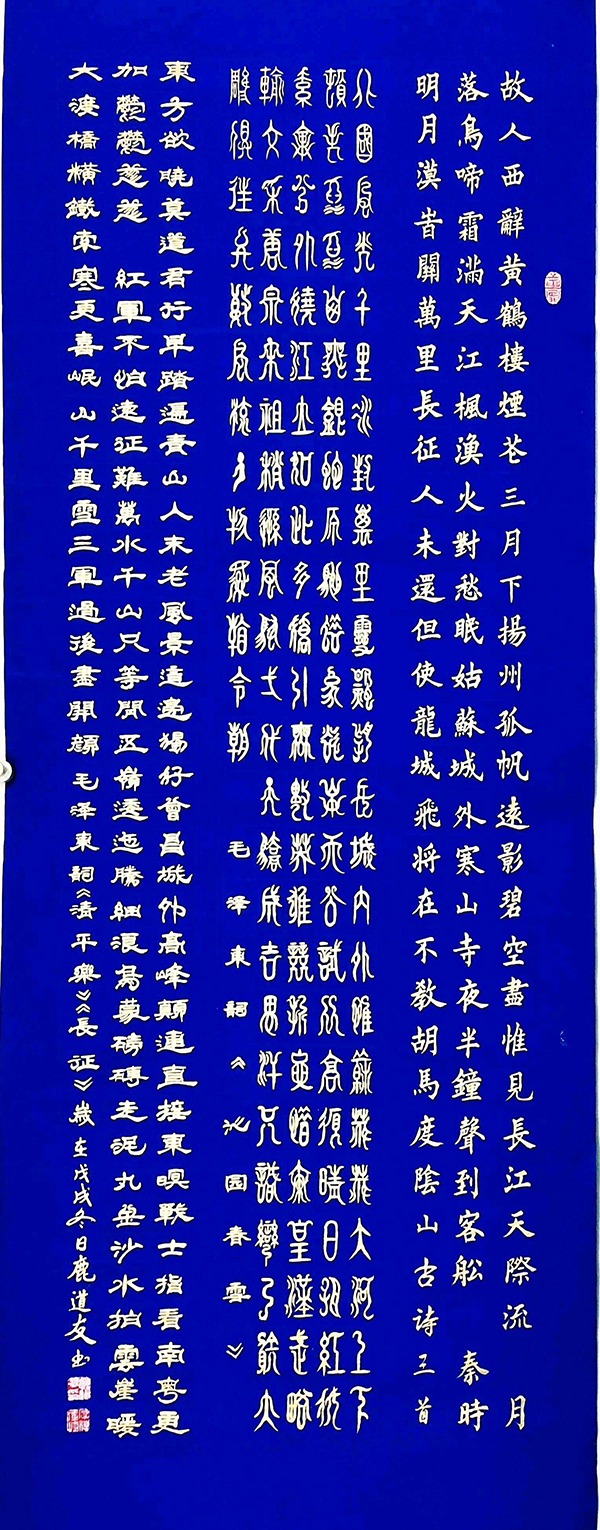 故人西辭黃鶴樓煙花三月下揚州孤帆遠影碧空盡惟見長江天際流 月
落烏啼霜滿天江楓漁火對愁眠姑蘇城外寒山寺夜半鐘聲到客舩 秦時
明月漢旹關萬里長征人未還但使龍城飛将在不教胡馬度陰山古诗三首
北國風光千里冰封萬里雪飄望長城內外惟餘莽莽大河上下
頓失滔滔山舞銀蛇原馳蠟象欲與天公試比高須晴日看紅妝
素裹分外嬈江山如此多嬌引無數英雄競折腰惜秦皇漢武略
輸文采唐宗宋祖稍遜風騷弌代天驕成吉思汗只識彎弓射大
雕俱往矣數風流人物還看今朝 毛泽東詞《沁园春雪》
東方欲曉莫道君行早踏遍青山人未老風景這邊獨好會昌城外高峰顛連直接東暝戰士指看南粵更
加鬱鬱葱葱 紅軍不怕遠征難萬水千山只等閒五嶺逶迤騰細浪烏蒙磅礴走泥丸金沙水拍雲崖暖
大渡橋橫鐵索寒更喜岷山千里雪三軍過後盡開顏毛泽東詞《清平樂》《長征》歲在戊戌冬日鹿道友书